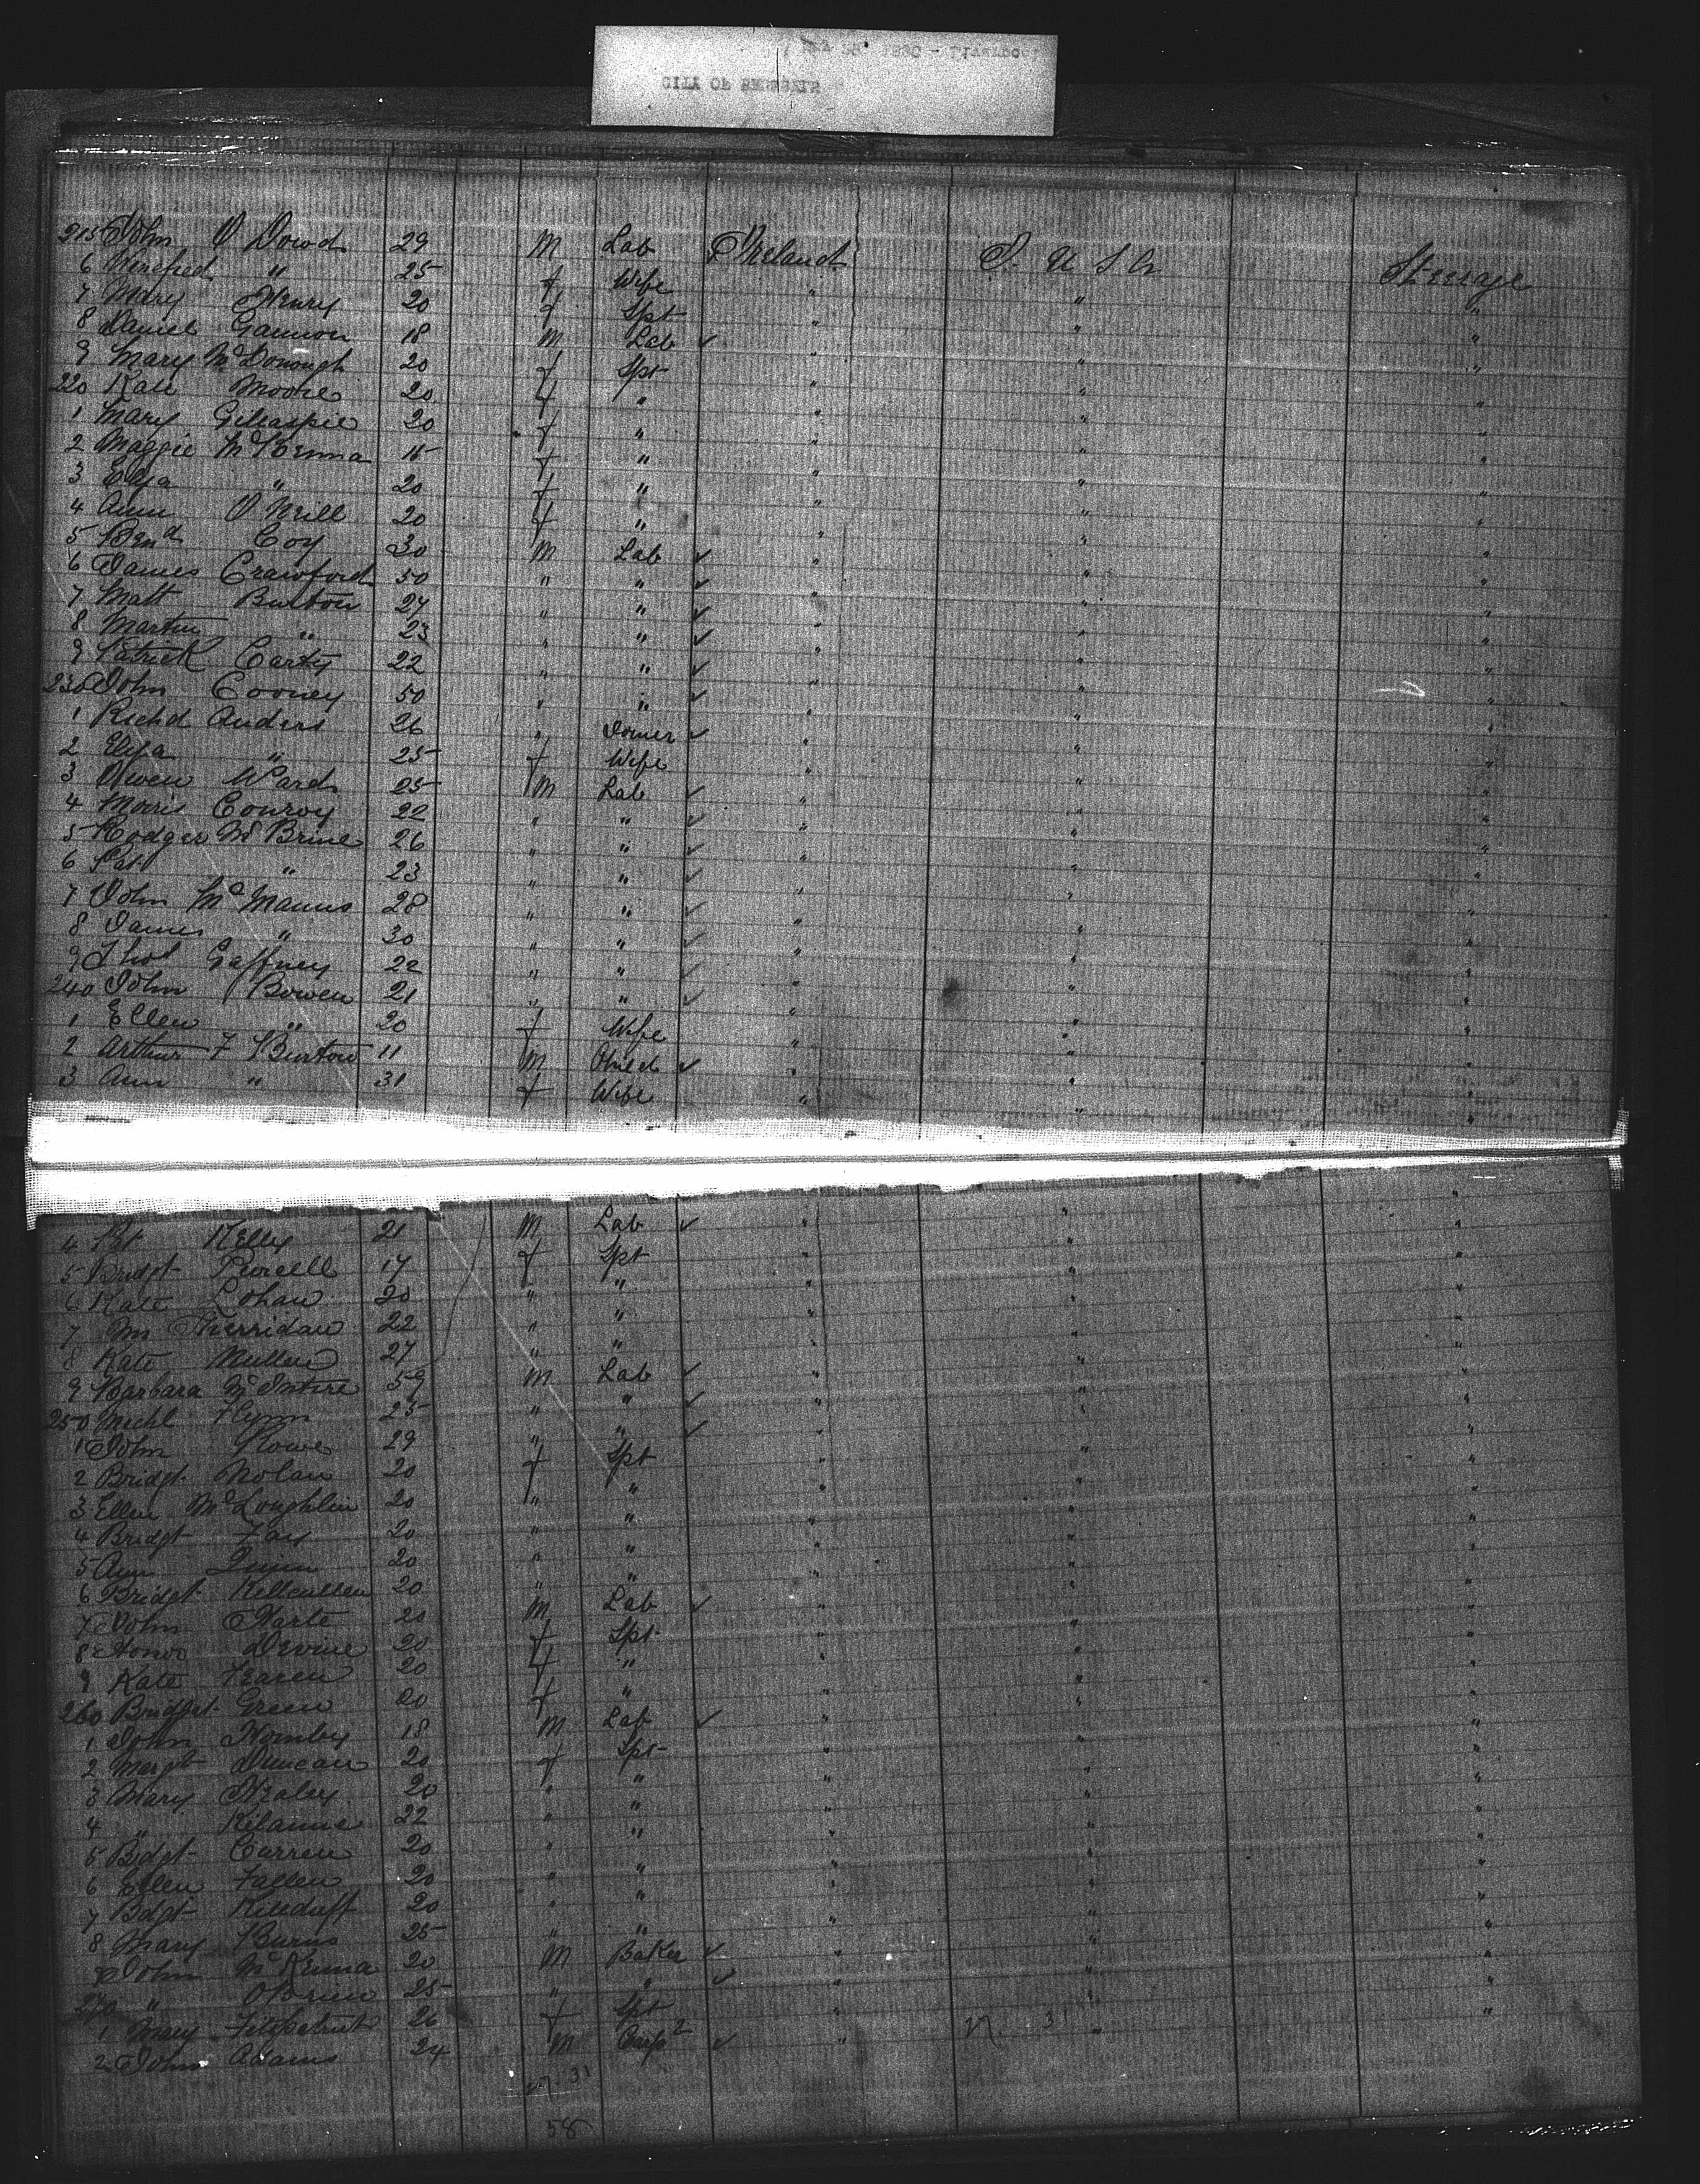 215 John O Dowd 29 M Lab Ireland U S A Steerage
6 Winefred " 25 f Wife " " "
7 Mary Henry 20 f Spt " " "
8 Daniel Gannon 18 M Lab ✓ " " "
9 Mary McDonough 20 f Spt " " "
220 Kate Moore 20 f " " " "
1 Mary Gillaspie 20 f " " " "
2 Maggie McKenna f " " " "
3 Eliza " 20 f " " " "
4 Ann O Neill 20 f " " " "
5 Coy 30 M Lab ✓ " " "
6 James Crawford 50 " " ✓ " " "
7 Matt Burton 27 " " ✓ " " "
8 Martin " 23 " " ✓ " " "
9 Patrick Carty 22 " " ✓ " " "
230 John Cooney 50 " " ✓ " " "
1 Richd Anders 26 " ✓ " " "
2 Eliza " 25 f Wife " " "
3 Owen Ward 25 M Lab ✓ " " "
4 Morris Conroy 22 " " ✓ " " "
5 Rodger McBrine 26 " " ✓ " " "
6 Pat " 23 " " ✓ " " "
7 John McManus 28 " " ✓ " " "
8 James " 30 " " ✓ " " "
9 Thos Gaffney 22 " " ✓ " " "
240 John Bowen 21 " " ✓ " " "
1 Ellen " 20 f Wife " " "
2 Arthur F Burton 11 M Child ✓ " " "
3 Ann " 31 f Wife " " "
4 Pat Kelly 21 M Lab ✓ " " "
5 Bridgt Purcell 17 f Spt " " "
6 Kate Lohan 20 " " " " "
7 M Sherridan 22 " " " " "
8 Kate Mullen 27 " " " " "
9 Barbara McIntire 59 M Lab ✓ " " "
250 Michl Flynn 25 " " ✓ " " "
1 John Rowe 29 " " ✓ " " "
2 Bridgt Nolan 20 f Spt " " "
3 Ellen McLoughlin 20 " " " " "
4 Bridgt Fay 20 " " " " "
5 Ann Quinn 20 " " " " "
6 Bridgt Killcullen 20 " " " " "
7 John Harte 20 M Lab ✓ " " "
8 Devine 20 f Spt " " "
9 Kate 20 f " " " "
260 Bridget Green 20 f " " " "
1 John 18 M Lab ✓ " " "
2 Margt Duncan 20 f Spt " " "
3 Mary Healey 20 " " " " "
4 " 22 " " " " "
5 Bdgt Curren 20 " " " " "
6 Ellen Fallen 20 " " " " "
7 Bdgt Killduff 20 " " " " "
8 Mary Burns 25 " " " " "
9 John McKenna 20 M Baker ✓ " " "
270 " OBrien 25 " " ✓ " " "
1 Mary Fitzpatrick 26 f Spt " " "
2 John Adams 24 M ✓ " "
27 31
58